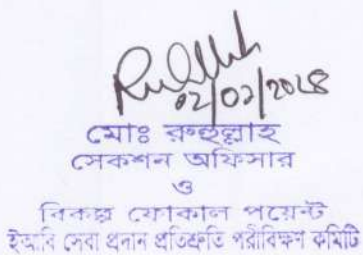 02/02/2025
মোঃ রুহুল্লাহ
সেকশন অফিসার
ও
বিকল্প ফোকাল পয়েন্ট
ইআবি সেবা প্রদান প্রতিশ্রুতি পরীবিক্ষণ কমিটি